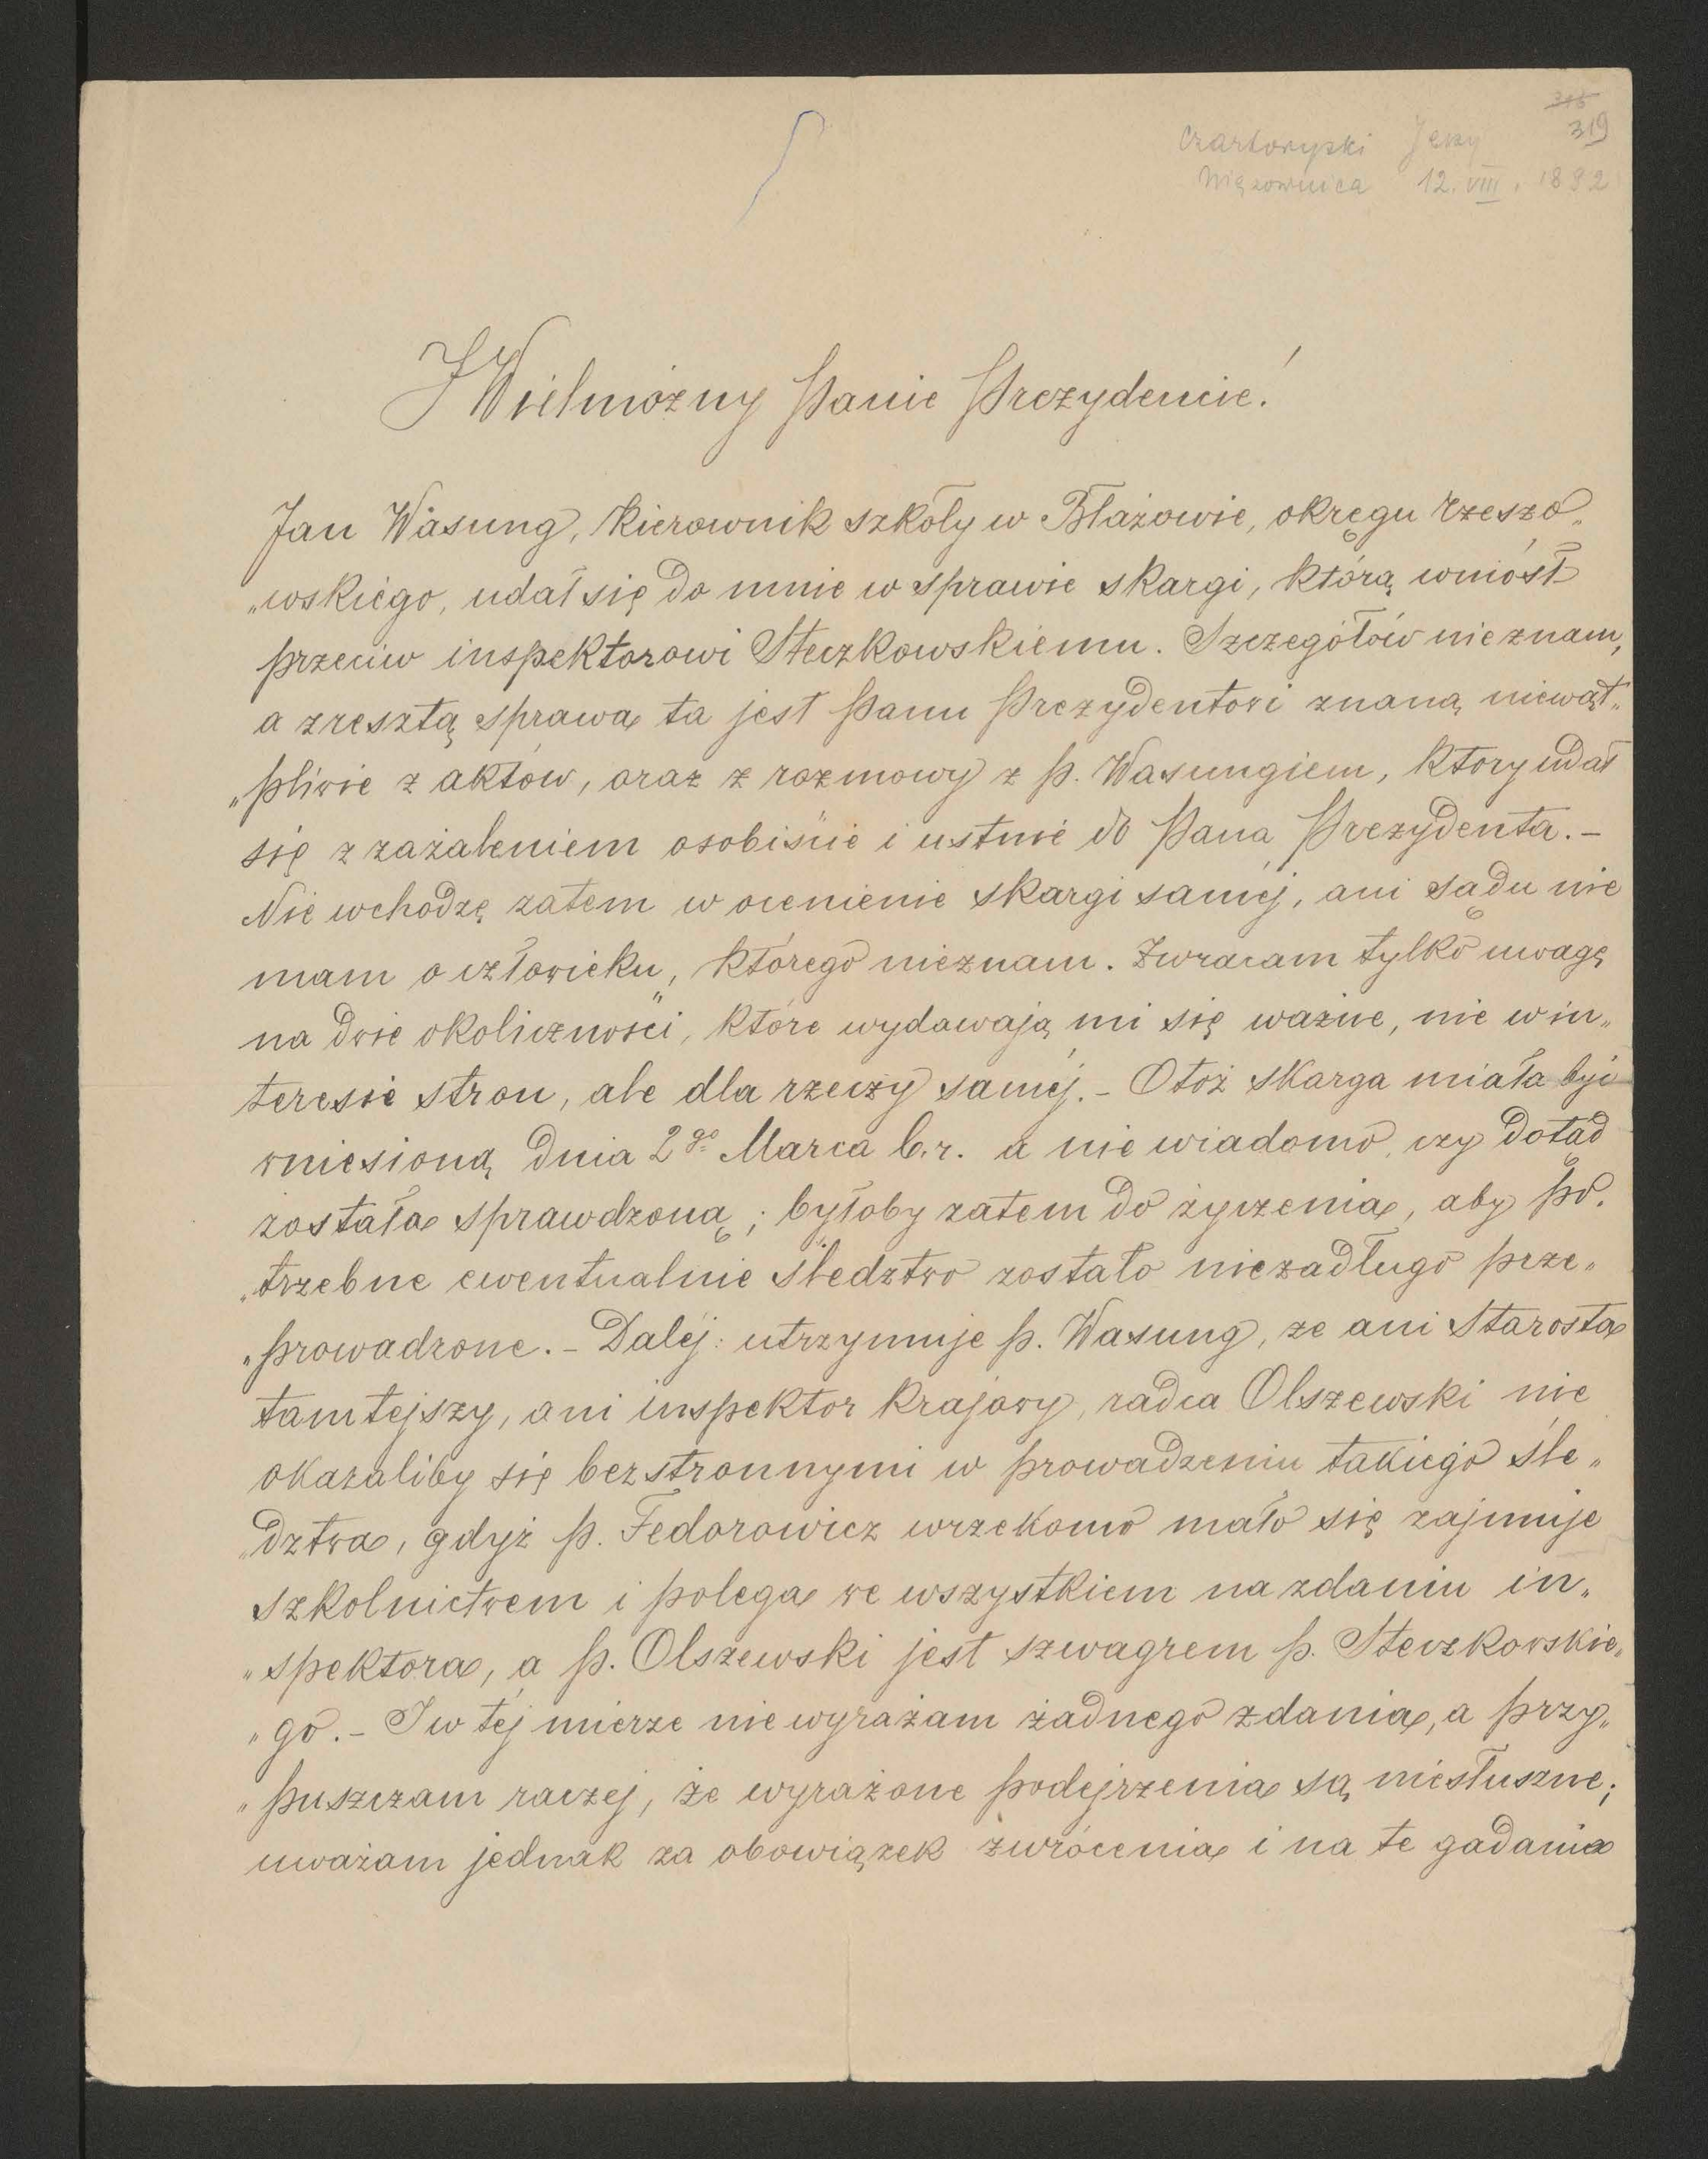 315
319
Czartoryski Jerzy
Wiązownica 12. VIII. 1892
JWielmożny Panie Prezydencie!
Jan Wasung, kierownik szkoły w Błażowie, okręgu rzeszo„
„wskiego, udał się do mnie w sprawie skargi, którą wniósł
przeciw inspektorowi Steczkowskiemu. Szczegółów nie znam,
a zresztą sprawa ta jest Panu Prezydentowi znaną niewąt„
„pliwie z aktów, oraz z rozmowy z p. Wasungiem, który udał
się z zażaleniem osobiście i ustnie do Pana Prezydenta. –
Nie wchodzę zatem w ocenienie skargi saméj, ani sądu nie
mam o człowieku, którego nieznam. Zwracam tylko uwagę
na dwie okoliczności, które wydawają mi się ważne, nie w in„
teresie stron, ale dla rzeczy saméj. – Otoż skarga miała być
wniesioną dnia 2go Marca b. r. a nie wiadomo, czy dotąd
została sprawdzoną; byłoby zatem do życzenia, aby po„
„trzebne ewentualnie śledztwo zostało niezadługo prze„
„prowadzone. – Daléj: utrzymuje p. Wasung, ze ani Starosta
tamtejszy, ani inspektor krajowy, radca Olszewski nie
okazaliby się bezstronnymi w prowadzeniu takiego śle„
„dztwa, gdyż p. Fedorowicz wrzekomo mało się zajmuje
szkolnictwem i polega we wszystkiem na zdaniu in„
„spektora, a p. Olszewski jest szwagrem p. Steczkowskie„
„go. – I w téj mierze nie wyrażam żadnego zdania, a przy„
„puszczam raczej, że wyrażone podejrzenia są niesłuszne;
uważam jednak za obowiązek zwrócenia i na te gadania